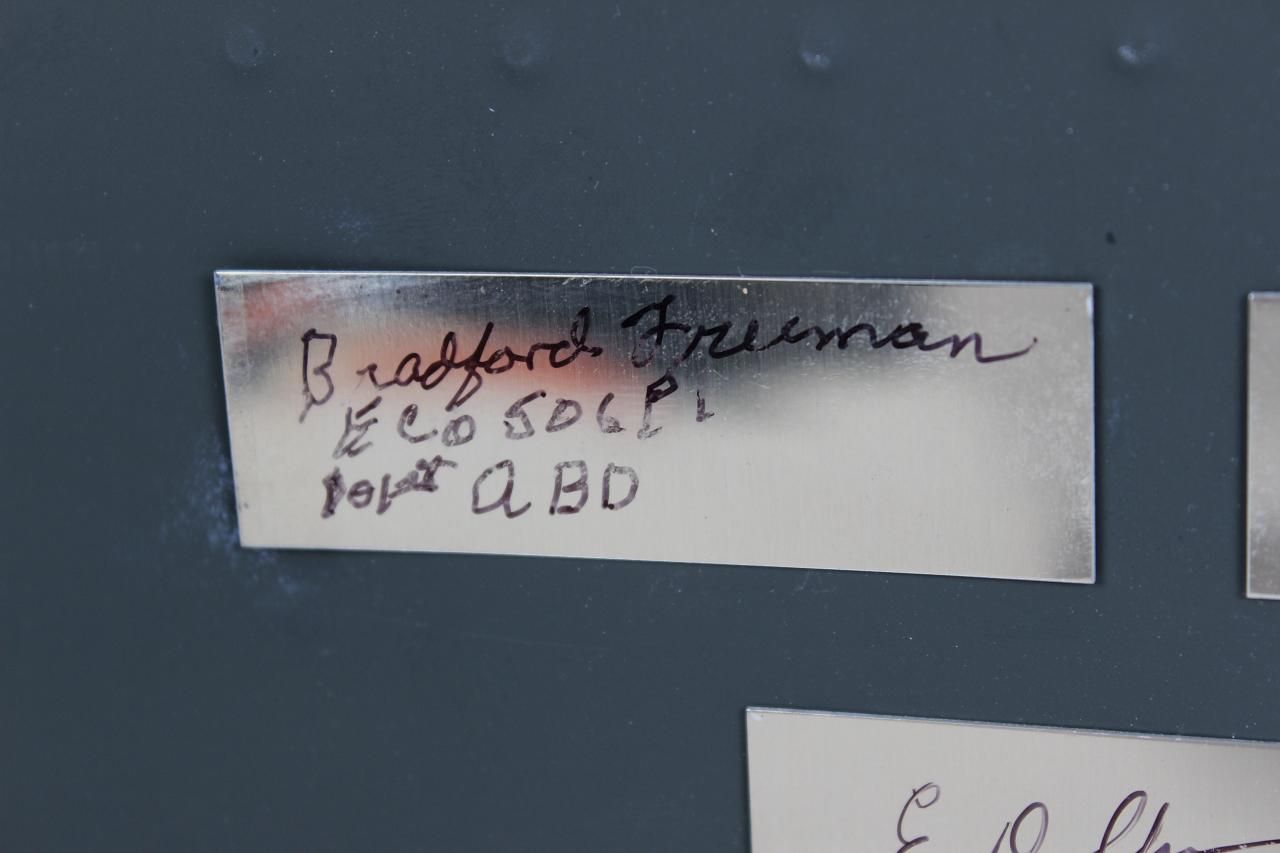 Bradford Freeman
E CO 506 PI
101st ABD
E D